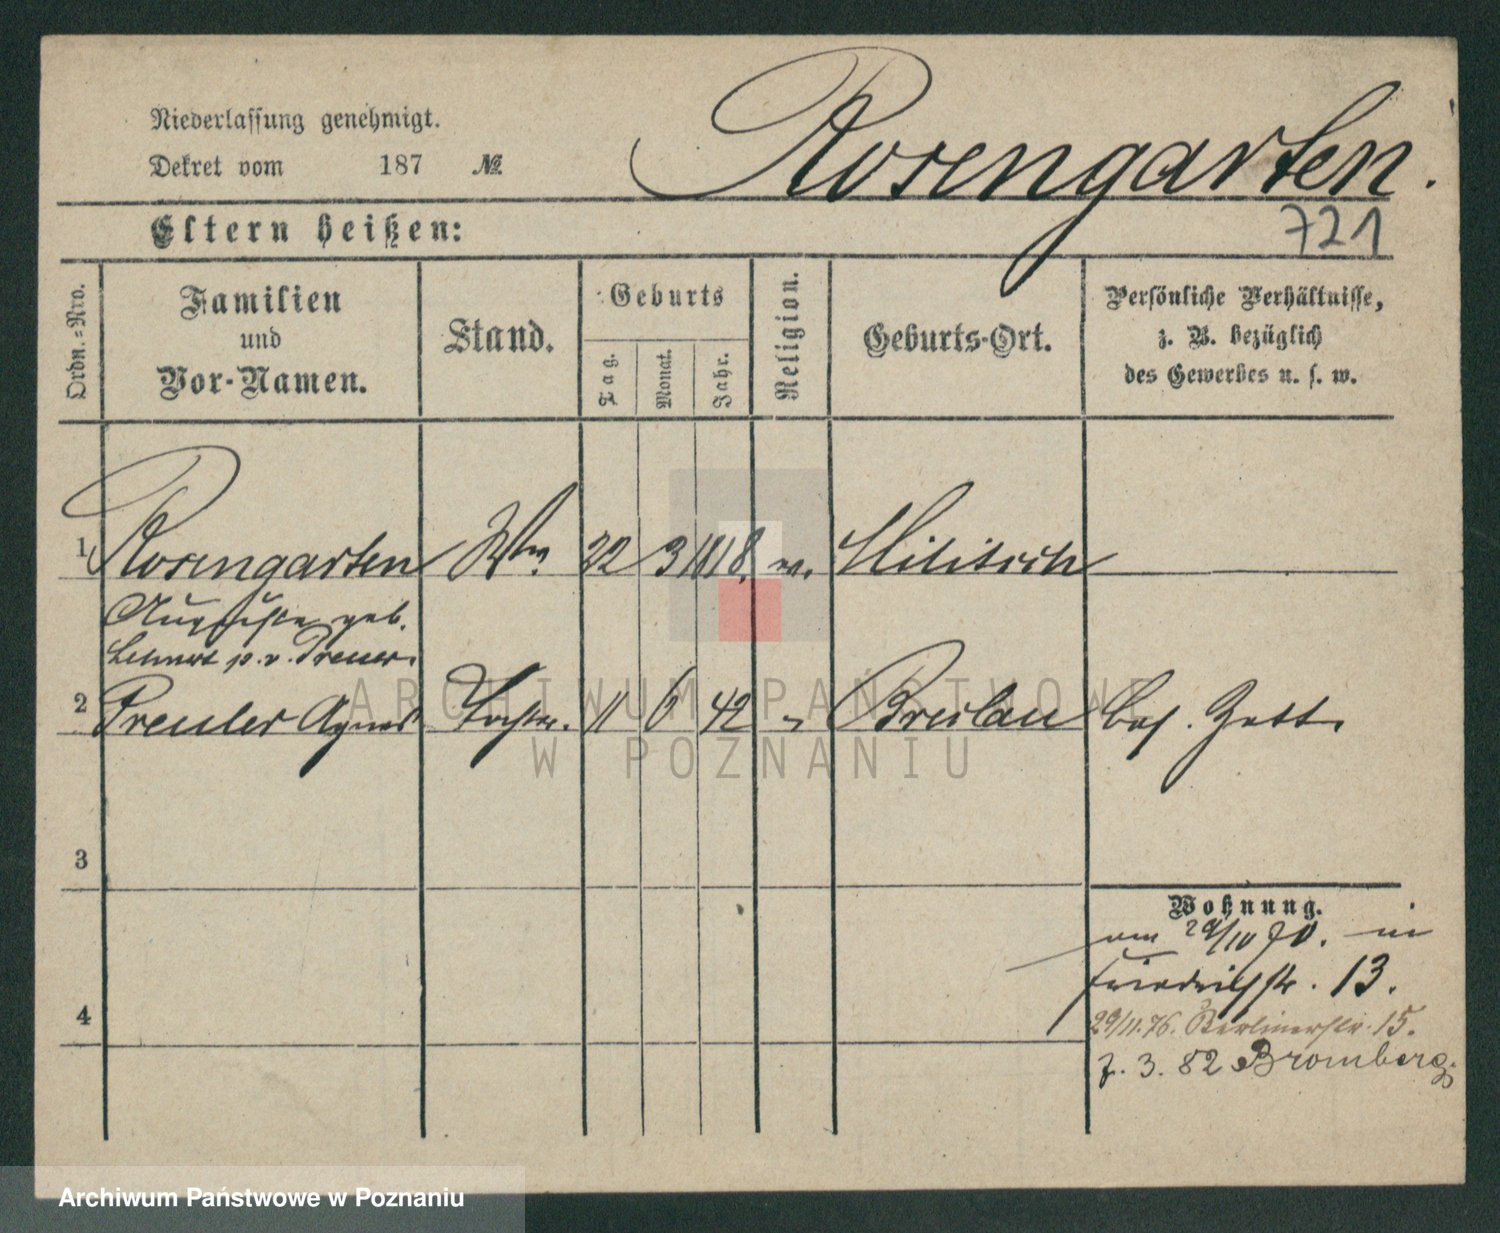 Niederlassung genehmigt.
Dekret vom 187 №
Rosengarten.
Eltern heißen:
721
Ordn.=Nro.
Familien
und
Vor-Namen.
Stand.
Geburts
Tag.
Monat.
Jahr.
Religion.
Geburts-Ort.
Persönliche Verhältnisse,
z. B. bezüglich
des Gewerbes u. s. w.
1 Rosengarten Ww. 22 3 1818. ev. Militsch
Auguste geb.
p. v.
2 Agnes Tochter. 11 6 42 Breslau
3
Wohnung.
am 29/10 70. in
Friedrichstr. 13.
4
29/11.76. Berlinerstr. 15.
7. 3. 82 Bromberg.
ARCHIWUM PAŃSTWOWE
W POZNANIU
Archiwum Państwowe w Poznaniu